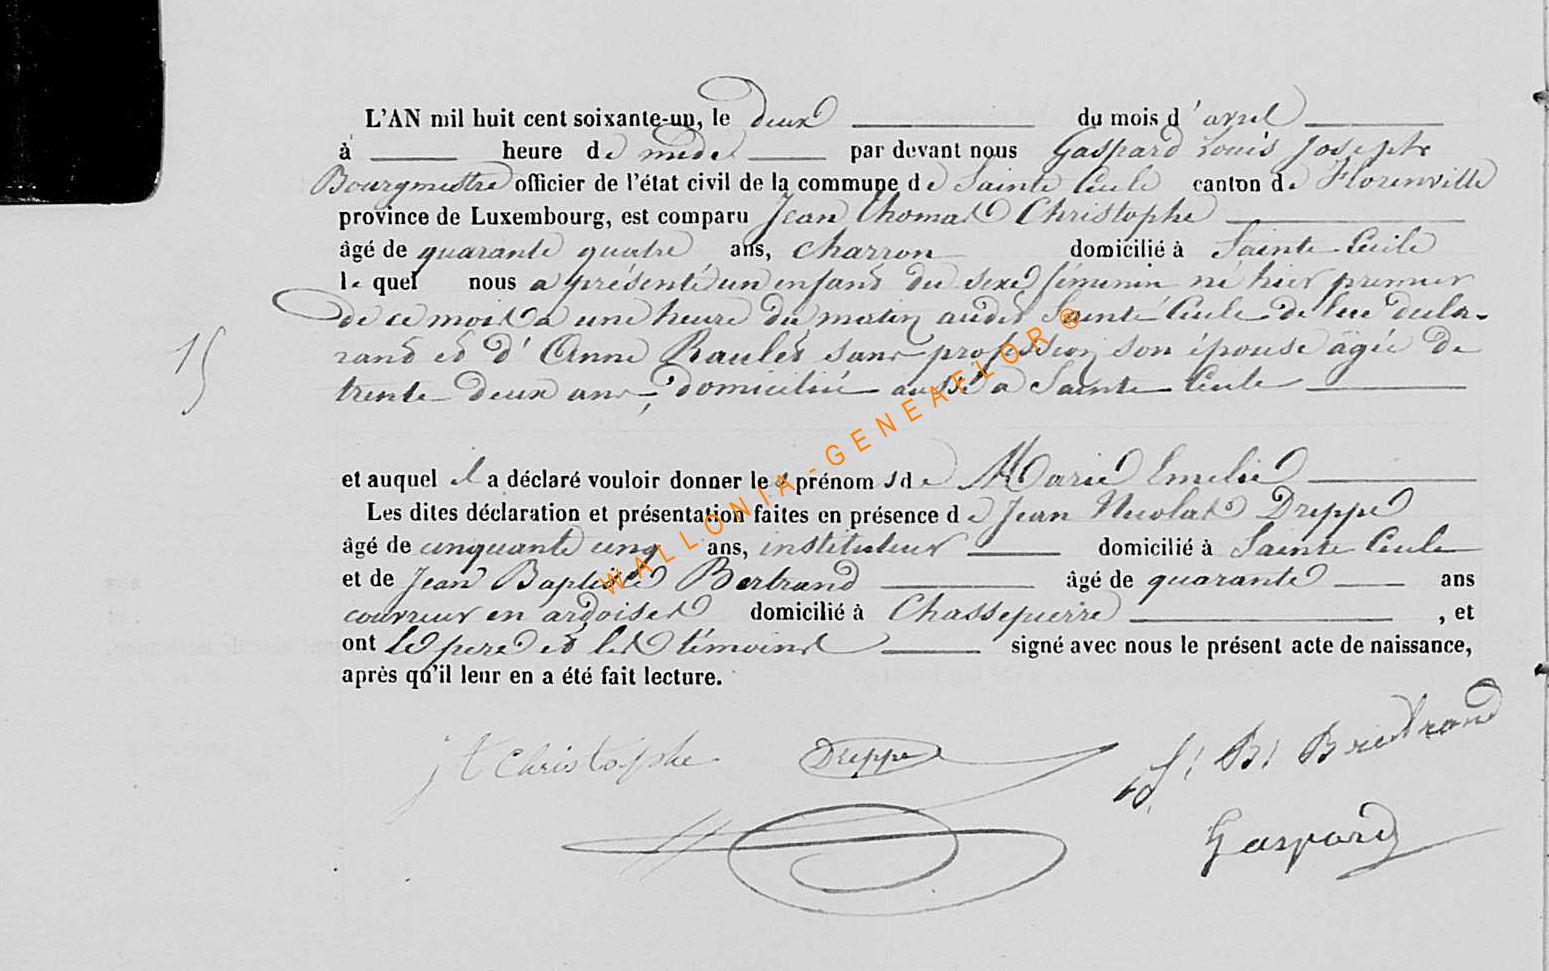 L'AN mil huit cent soixante-un, le deux du mois d'avril
à heure de midi par devant nous Gaspard Louis Joseph
Bourgmestre officier de l'état civil de la commune de Sainte Cécile canton de Florenville
province de Luxembourg, est comparu Jean Thomas Christophe
âgé de quarante quatre ans, charron domicilié à Sainte Cécile
le quel nous a présenté un enfant du sexe féminin né hier premier
de ce mois à une heure du matin audit Sainte Cécile de lui décla-
15
rant et d'Anne Raulet sans profession son épouse âgée de
trente deux ans, domiciliée aussi à Sainte Cécile
et auquel il a déclaré vouloir donner les prénoms de Marie Emelie
Les dites déclaration et présentation faites en présence de Jean Nicolas Dreppe
âgé de cinquante cinq ans, instituteur domicilié à Sainte Cécile
et de Jean Baptiste Bertrand âgé de quarante ans
couvreur en ardoises domicilié à Chassepierre , et
ont les pere et les témoins signé avec nous le présent acte de naissance,
après qu'il leur en a été fait lecture.
jt Christophe Dreppe J! B! Bertrand
Gaspard
WALLONIA-GENEAFLOR®